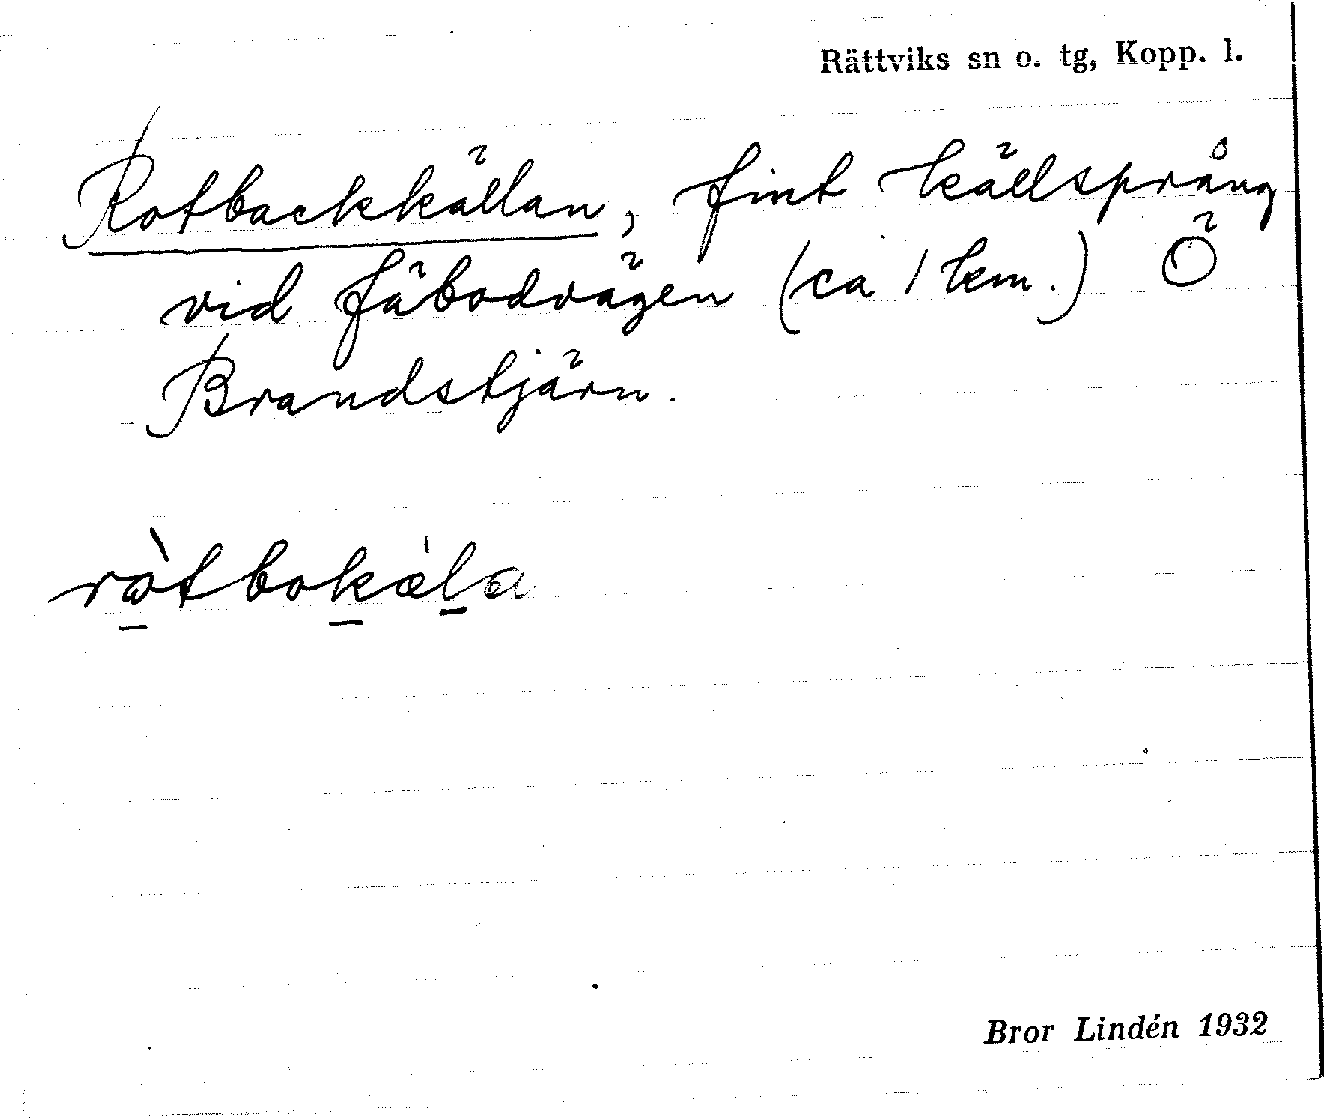 Rättviks sn o. tg, Kopp. l.
Rotbackkällan, fint källsprång
vid fäbodvägen (ca 1 km.) Ö
Brandstjärn.
ròtbokæla
Bror Lindén 1932